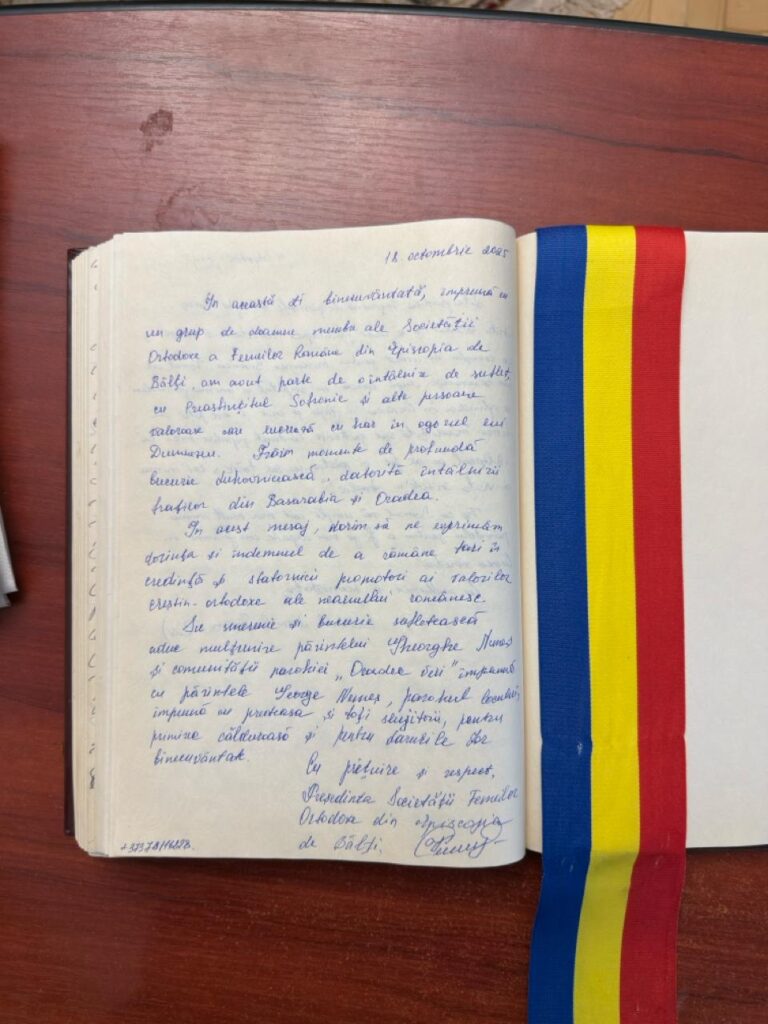 18. octombrie 2025
În această zi binecuvântată, împreună cu
un grup de doamne membre ale Societății
Ortodoxe a Femeilor Române din Episcopia de
Bălți, am avut parte de o întâlnire de suflet,
cu Preasfințitul Sofronie și alte persoane
valoroase care lucrează cu har în ogorul lui
Dumnezeu. Trăim momente de profundă
bucurie duhovnicească, datorită întâlnirii
fraților din Basarabia și Oradea.
În acest mesaj, dorim să ne exprimăm
dorința și îndemnul de a rămâne tari în
credință și statornici promotori ai valorilor
creștin-ortodoxe ale neamului românesc.
Cu smerenie și bucurie sufletească
aduc mulțumire părintelui Gheorghe Nemeș
și comunității parohiei „Oradea Veri" împreună
cu părintele George Nemeș, parohul locului,
împreună cu preoteasa, și toți slujitorii, pentru
primire călduroasă și pentru darurile
binecuvântate.
Cu prețuire și respect,
Președinta Societății Femeilor
Ortodoxe din Episcopia
de Bălți